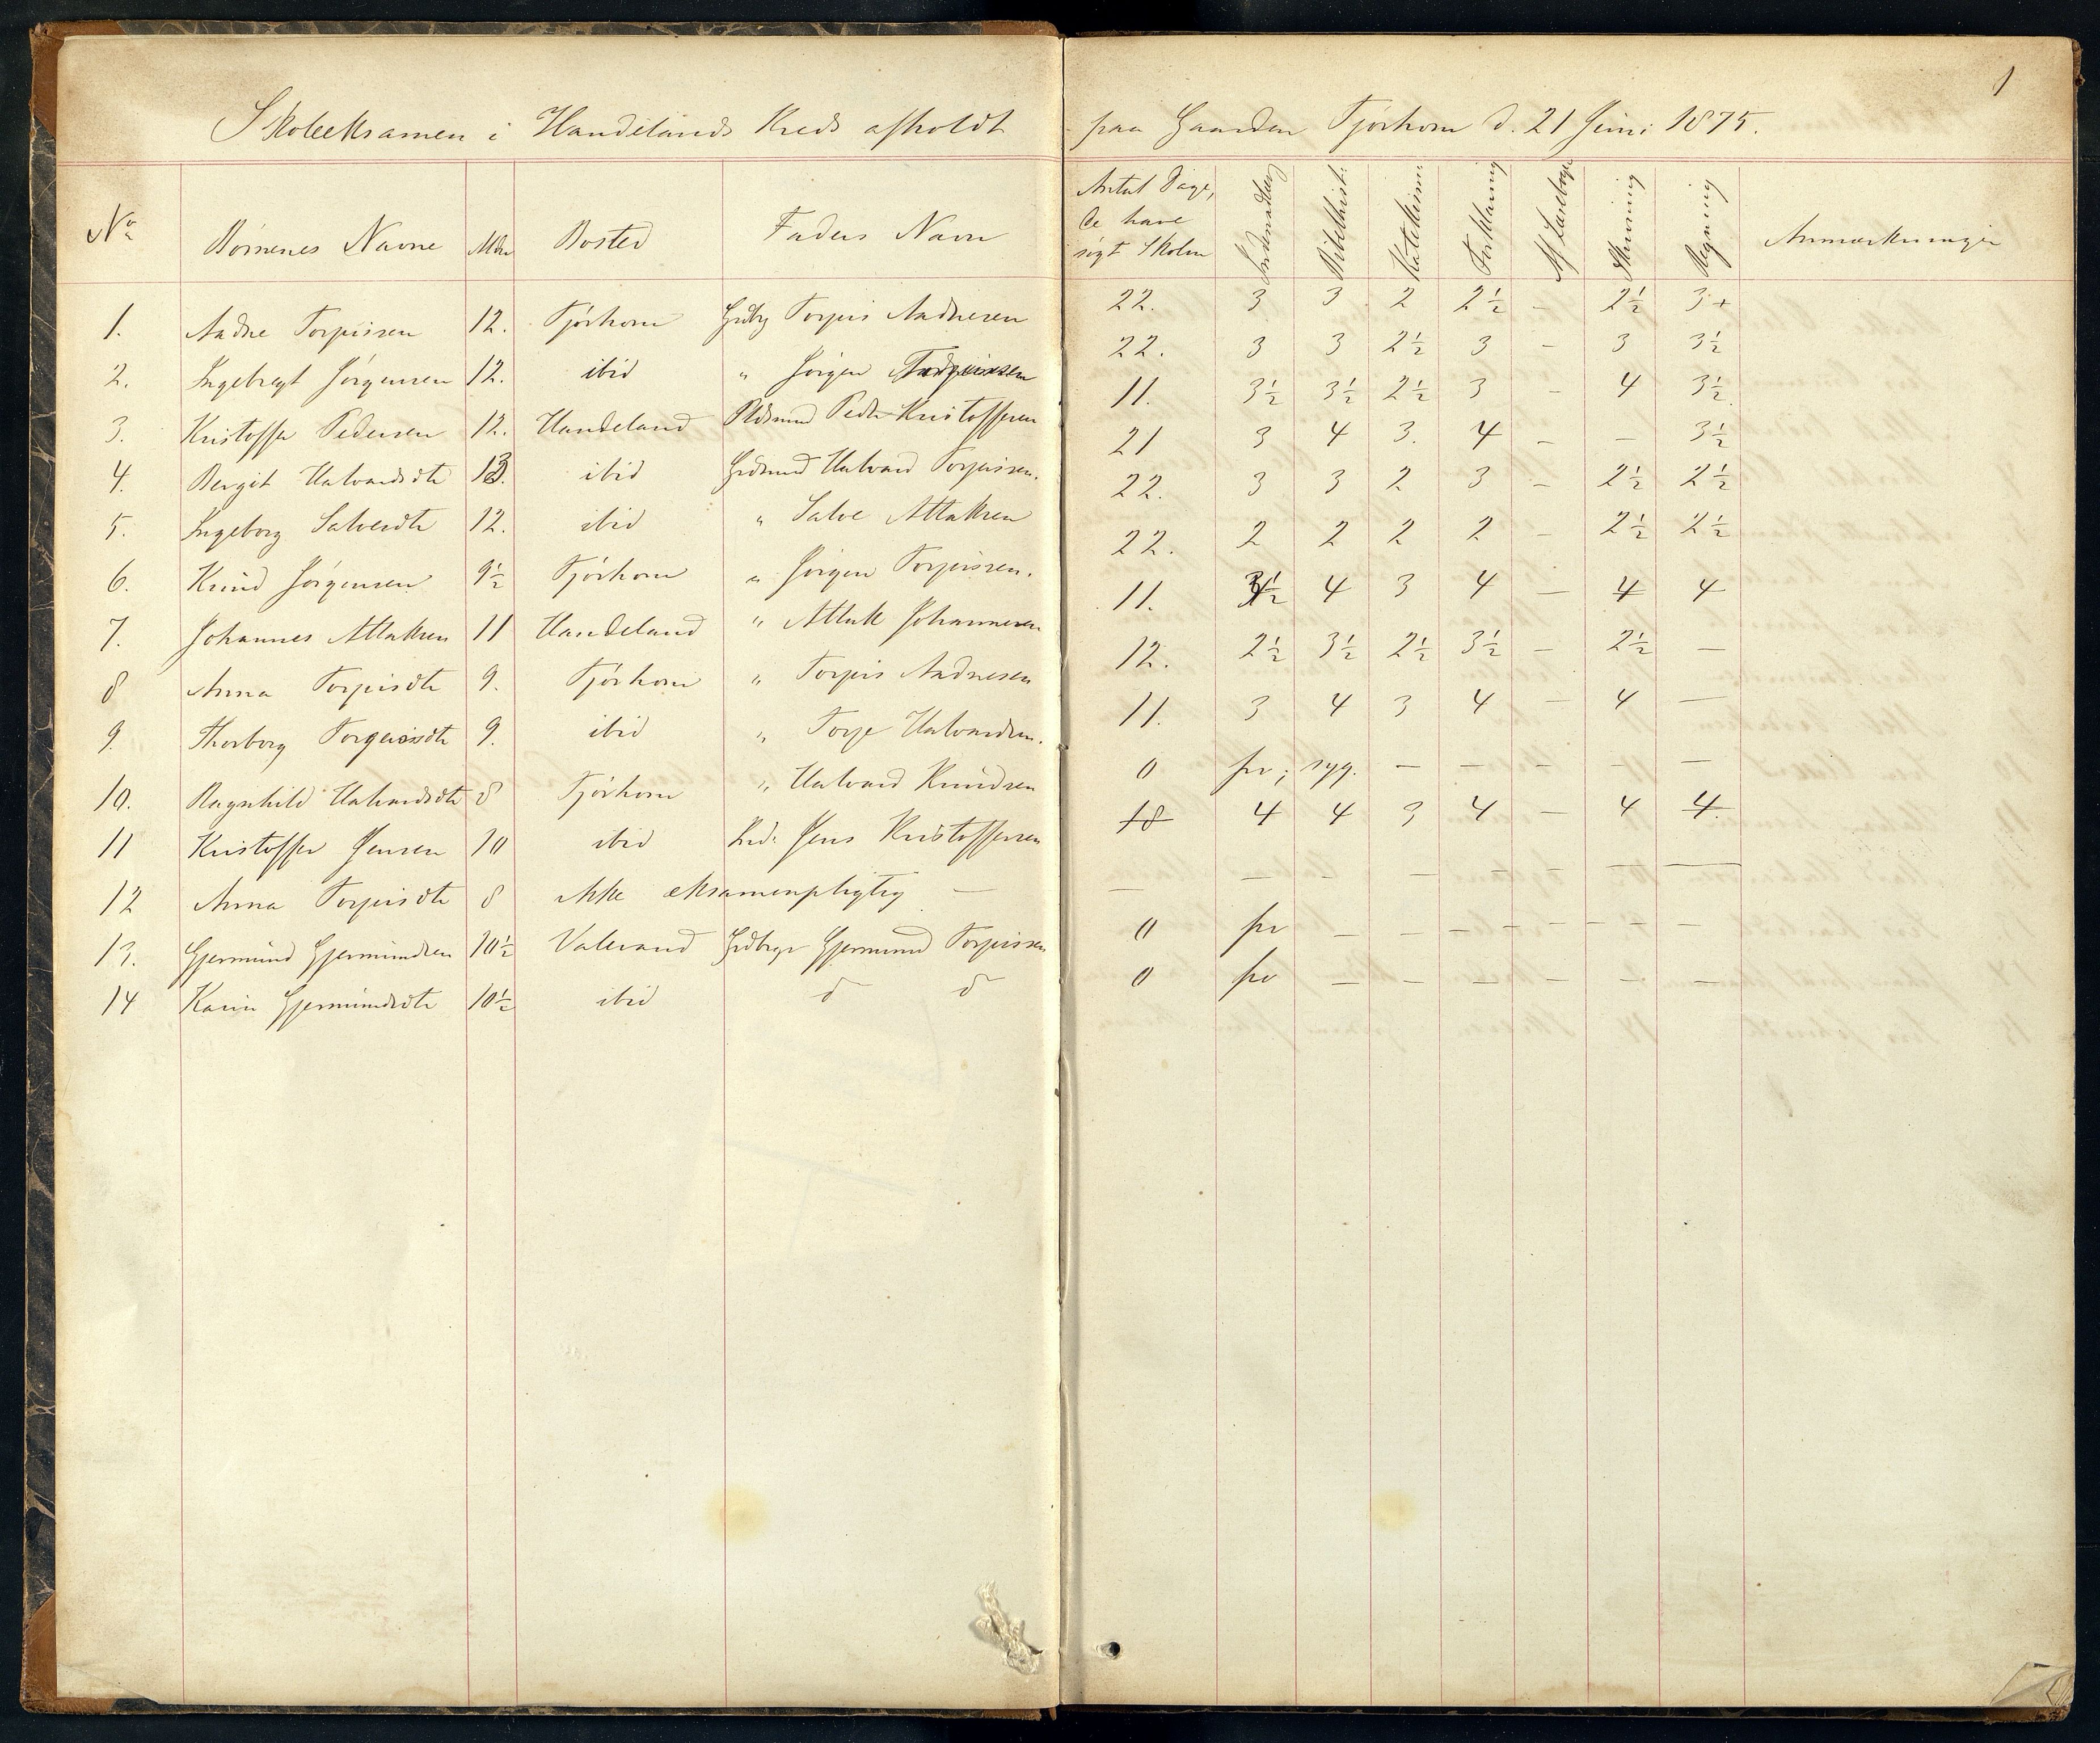 1
Skoleeksamen i Handelands Kreds afholdt paa Gaarden Tjørhom d. 21 Juni 1875.
No Børnenes Navne Alder Bosted Faders Navn Antal Dage, de have søgt Skolen Indenadlæsn Bibelhist. Katekisme Forklaring Af Læsebogen Skrivning Regning Anmærkninger
1. Andre Torgiissen 12. Tjørhom Grdbr Torgiis Andresen 22. 3 3 2 2½ – 2½ 3+
2. Ingebregt Jørgensen 12. ibid " Jørgen Torgiissen 22. 3 3 2½ 3 – 3 3½
3. Kristoffer Pedersen 12. Handeland Pldsmd Peder Kristoffersen 11. 3½ 3½ 2½ 3 – 4 3½
4. Bergit Halvardsdtr 13. ibid Grdmnd Halvard Torgiissen. 21 3 4 3. 4 – – 3½
5. Ingeborg Salvesdtr 12. ibid " Salve Atlaksen 22. 3 3 2 3 – 2½ 2½
6. Knud Jørgensen 9½ Tjørhom " Jørgen Torgiissen. 22. 2 2 2 2 – 2½ 2½
7. Johannes Atlaksen 11 Handeland " Atlak Johannesen 11. 3½ 4 3 4 – 4 4
8 Anna Torgiisdtr 9. Tjørhom " Torgiis Andresen 12. 2½ 3½ 2½ 3½ – 2½ –
9. Thorborg Torgeisdtr 9. ibid " Torje Halvardsen. 11. 3 4 3 4 – 4 –
10. Ragnhild Halvardsdtr 8 Tjørhom " Halvard Knudsen 0 fr; syg. – – – – –
11 Kristoffer Jensen 10 ibid Jens Kristoffersen 18 4 4 3 4 – 4 4.
12 Anna Torgiisdtr 8 ikke eksamenspligtig – – – – – – – – –
13. Gjermund Gjermundsen 10½ Valevand Grdbrgr Gjermund Torgiissen 0 fr – – – – – –
14 Karin Gjermundsdtr 10½ ibid d d 0 fr – – – – – –